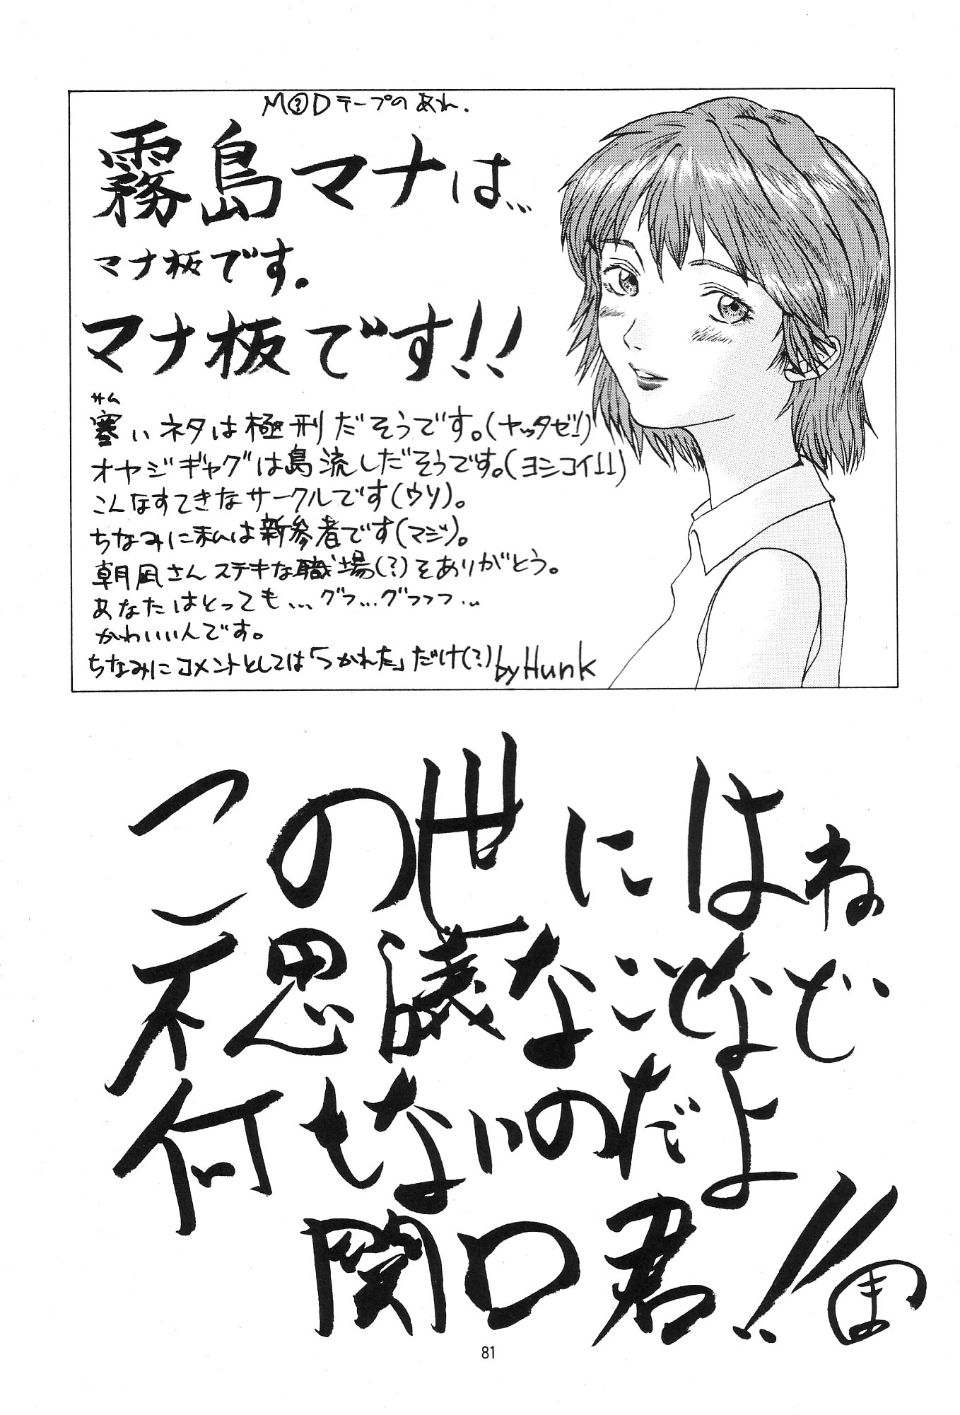 M?Dテープのあれ.
霧島マナは…
マナ板です。
マナ板です!!
サム
寒いネタは極刑だそうです。(ヤッタゼ!!)
オヤジギャグは島流しだそうです。(ヨシコイ!!)
こんなすてきなサークルです(ウソ)。
ちなみに私は新参者です(マジ)。
朝凪さんステキな職場(?)をありがとう。
あなたはとっても…グフ…グフフフ…
かわいいんです。
ちなみにコメントとしては「つかれた」だけ(?) by Hunk
この世にはね
不思議なことなど
何もないのだよ
関口君!!
ま
81